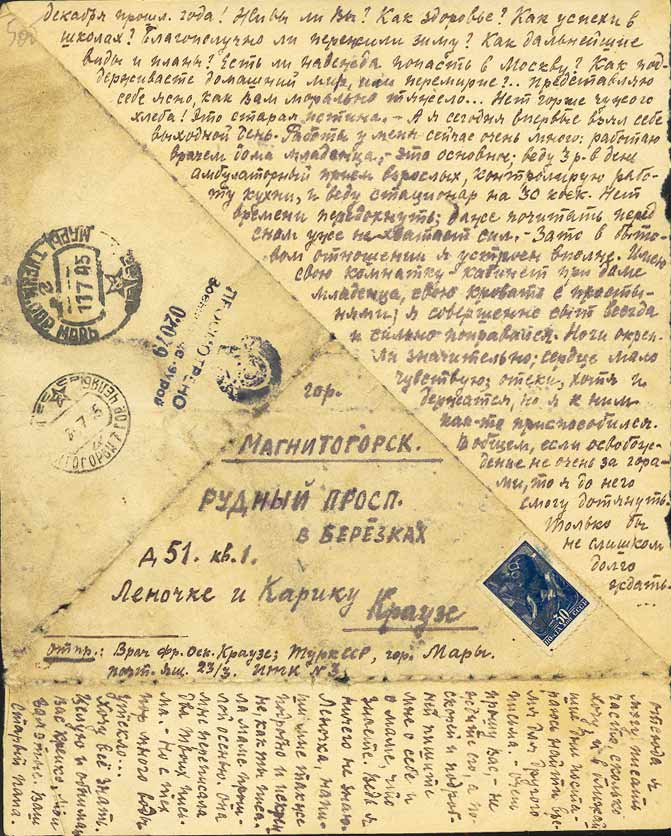 декабря прошл. года! Живы ли Вы? Как здоровье? Как успехи в
школах? Благополучно ли пережили зиму? Как дальнейшие
виды и планы? Есть ли надежда попасть в Москву? Как под-
держиваете домашний мир, или перемирие?.. Представляю
себе ясно, как Вам морально тяжело... Нет горше чужого
хлеба! Это старая истина. - А я сегодня впервые взял себе
выходной день. Работы у меня сейчас очень много: работаю
врачем дома младенца, - это основное; веду 3 р. в день
амбулаторный прием взрослых, контролирую рабо-
ту кухни, и веду стационар на 30 коек. Нет
времени передохнуть; даже почитать перед
сном уже не хватает сил. - Зато в быто-
вом отношении я устроен вполне. Имею
свою комнатку-кабинет при доме
младенца, свою кровать с просты-
нями; я совершенно сыт всегда
и сильно поправился. Ноги окреп-
ли значительно; сердце мало
чувствую; отеки, хотя и
держатся, но я к ним
как-то приспособился.
Вообщем, если освобож-
дение не очень за гора-
ми, то я до него
смогу дотянуть.
Только бы
не слишком
долго
ждать...
МАРЫ ТУРКМ.
11 7 45
ПРОСМОТРЕНО
Военной Цензурой
02079
МАГНИТОГОРСК ЧЕЛЯБ.
гор.
МАГНИТОГОРСК.
РУДНЫЙ ПРОСП.
в БЕРЁЗКАХ
д 51. кв. 1.
Леночке и Карику
Краузе
30
отпр.: Врач Фр. Оск. Краузе; Турк ССР, гор. Мары.
почт. ящ. 23/3. ИТК № 3.
отсюда я
могу писать
часто, сколько
хочу, и в
наюсь найти вре-
мя для другого
письма. - Очень
прошу Вас, - не
ждите его, а по-
скорей и подроб-
ней пишите
мне о себе и
о маме, что
знаете. Ведь я
ничего не знаю.
Леночка, напи-
ши мне также
подробно и
не как ты писа-
ла маме прош-
лой осенью. Она
мне переписала
два твоих пись-
ма. - Но с тех
пор много воды
утекло...
Хочу всё знать.
Целую и обнимаю
Вас крепко, мои
Ваш
старый папа.